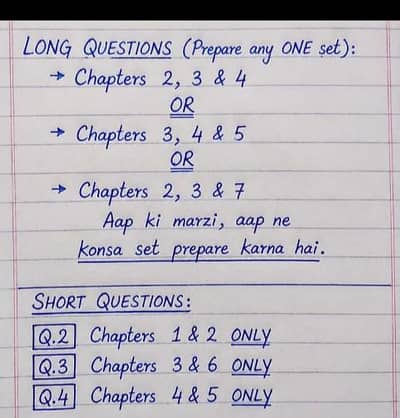 LONG QUESTIONS (Prepare any ONE set):
→ Chapters 2, 3 & 4
OR
→ Chapters 3, 4 & 5
OR
→ Chapters 2, 3 & 7
Aap ki marzi, aap ne
konsa set prepare karna hai.
SHORT QUESTIONS:
Q.2 Chapters 1 & 2 ONLY
Q.3 Chapters 3 & 6 ONLY
Q.4 Chapters 4 & 5 ONLY